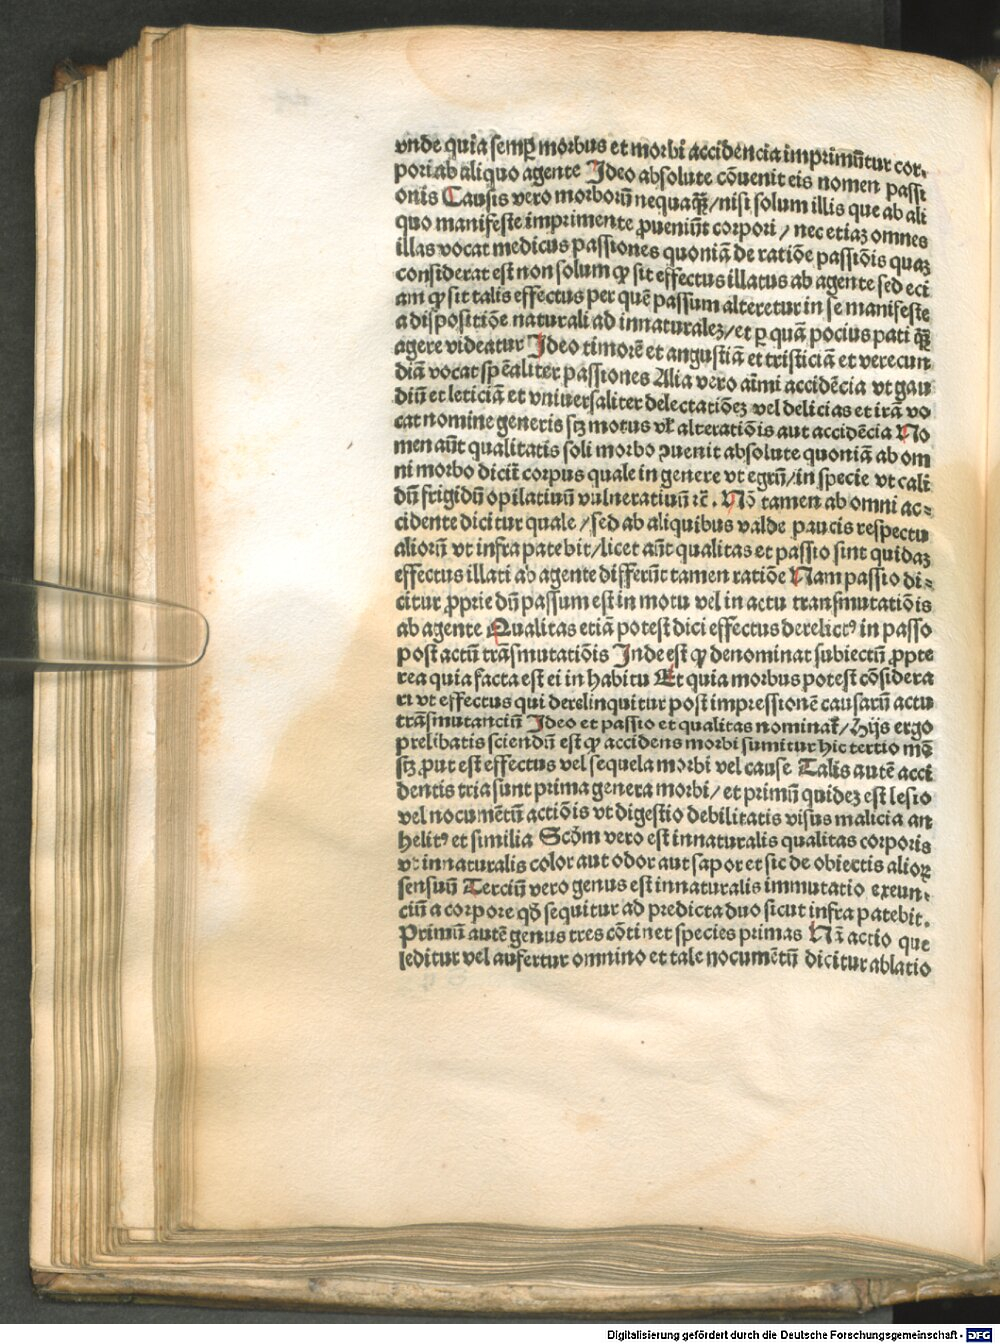 vnde quia semꝑ morbus et morbi accidencia imprimūtur cor⸗
pori ab aliquo agente Jdeo absolute cōuenit eis nomen passi
onis Causis vero morborū nequaqȝ̄/nisi solum illis que ab ali
quo manifeste imprimente ꝓueniūt corpori/ nec etiaȝ omnes
illas vocat medicus passiones quoniā de ratiōe passiōis quaȝ
considerat est non solum ꝙ sit effectus illatus ab agente sed eci
am ꝙ sit talis effectus per quē passum alteretur in se manifeste
a dispositiōe naturali ad innaturaleȝ/et ꝑ quā pocius pati qȝ̄
agere videatur Jdeo timorē et angustiā et tristiciā et verecun
diā vocat spēaliter passiones Alia vero aīmi accidēcia vt gau
diū et leticiā et vniuersaliter delectatiōeȝ vel delicias et irā vo
cat nomine generis sȝ motus vł alteratiōis aut accidēcia No
men aūt qualitatis soli morbo ꝯuenit absolute quoniā ab om
ni morbo dicit̄ corpus quale in genere vt egrū/in specie vt cali
dū frigidū opilatiuū vulneratiuū ꝛc̄. Nō tamen ab omni ac⸗
cidente dicitur quale/sed ab aliquibus valde paucis respectu
aliorū vt infra patebit/licet aūt qualitas et passio sint quidaȝ
effectus illati ab agente differūt tamen ratiōe Nam passio di⸗
citur ꝓprie dū passum est in motu vel in actu transmutatiōis
ab agente Qualitas etiā potest dici effectus derelictꝰ in passo
post actū trāsmutatiōis Jnde est ꝙ denominat subiectū ꝓpte
rea quia facta est ei in habitu Et quia morbus potest cōsidera
ri vt effectus qui derelinquitur post impressionē causarū actu
trāsmutanciū Jdeo et passio et qualitas nominat̄/Hijs ergo
prelibatis sciendū est ꝙ accidens morbi sumitur hic tertio mō
sȝ ꝓut est effectus vel sequela morbi vel cause Talis autē acci
dentis tria sunt prima genera morbi/ et primū quideȝ est lesio
vel nocumētū actiōis vt digestio debilitatis visus malicia an
helitꝰ et similia Scōm vero est innaturalis qualitas corporis
vt innaturalis color aut odor aut sapor et sic de obiectis alioꝝ
sensuū Terciū vero genus est innaturalis immutatio exeun⸗
ciū a corpore qð sequitur ad predicta duo sicut infra patebit.
Primū autē genus tres cōtinet species primas Nā actio que
leditur vel aufertur omnino et tale nocumētū dicitur ablatio
Digitalisierung gefördert durch die Deutsche Forschungsgemeinschaft - DFG